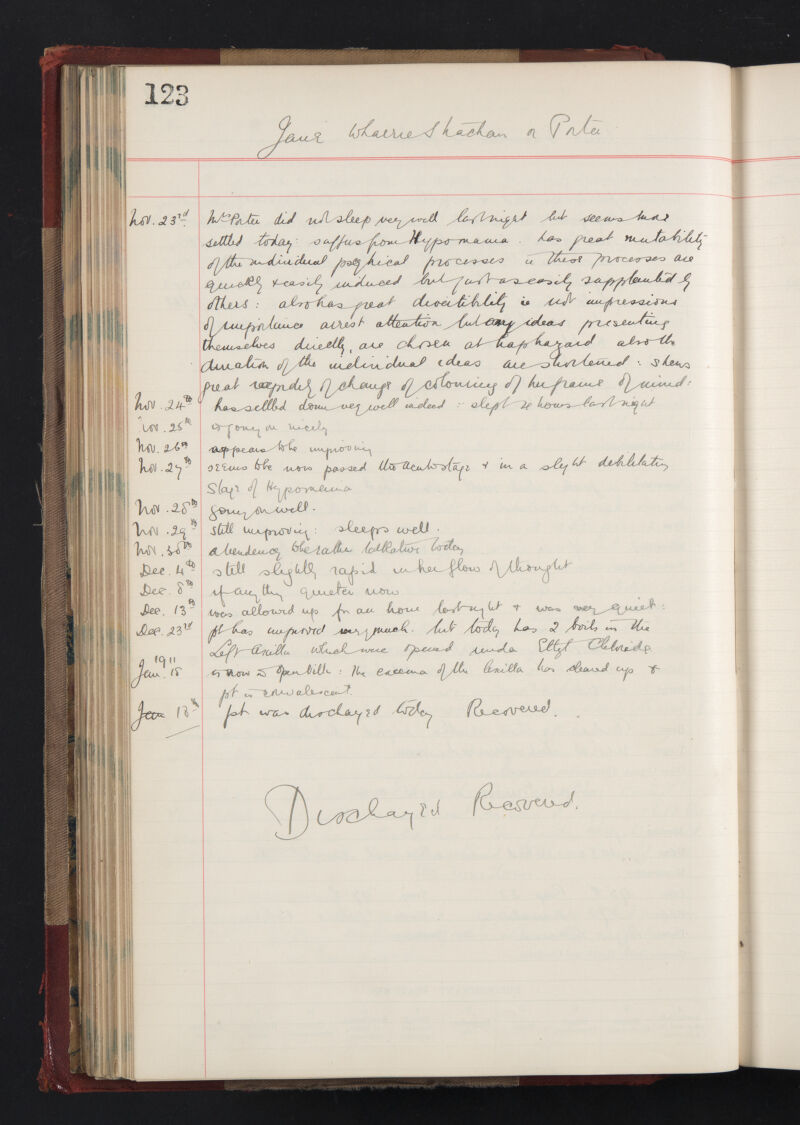 123
Jane Wharrie Strachan or Porter
Nov. 23rd Mrs Porter did not sleep very well last night but seems more
settled today: suffers from Hypomania. has great mutability
of the individual psychical processes ie these processes are
quickly & easily induced but just as easily supplanted by
others: also has great divertibility ie not impressions
of importance arrest attention but any ideas presenting
themselves directly, are chosen at haphazard also the
duration of the individual ideas are shortened: shews
great rapidity of change of colouring of her frame of mind:
Nov. 24th has settled down very well indeed: slept hours last night
Nov. 25th is going on nicely
Nov. 26th appears to be improving
Nov. 27th seems to be now passed the acute stage & in a slight debilitating
Stage of Hypomania
Nov. 28th going on well.
Nov. 29th still improving: sleeps well.
Nov. 30th a tendency to be rather talkative today
Dec. 4th still slightly rapid in her flow of thought
Dec. 8th if anything quieter now
Dec. 13th was allowed up for an hour last night & was very quiet:
Dec. 23rd pt has improved very much. but today has 2 boils in the
Left Axilla which were opened under Ethyl Chloride
1911
Jan. 15 is now in Open Villa: the eczema of the Axilla has cleared up &
pt is convalescent.
Jan 18th pt was discharged today Recovered.
Discharged Recovered.